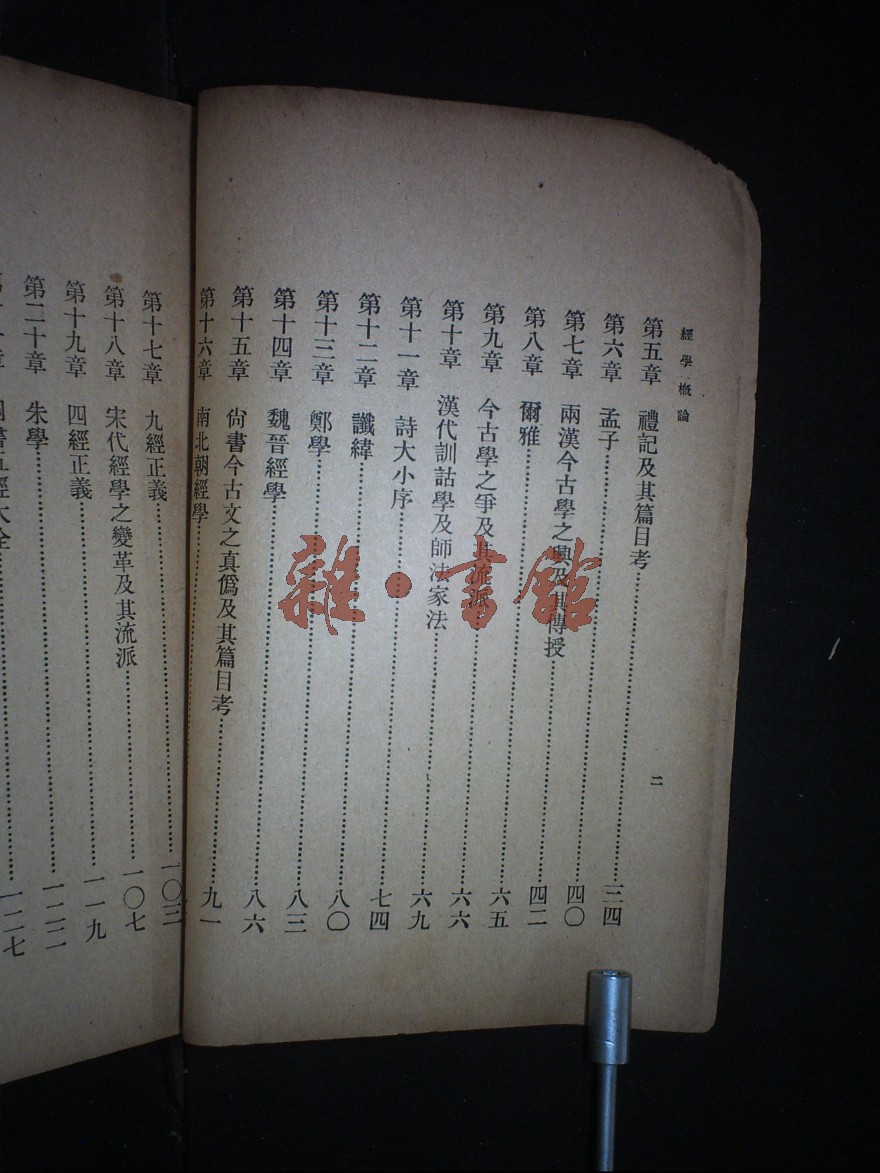 經學概論
二
第五章 禮記及其篇目考……三四
第六章 孟子……四〇
第七章 兩漢今古學之興及其傳授……四二
第八章 爾雅……六五
第九章 今古學之爭及其流派……六六
第十章 漢代訓詁學及師法家法……六九
第十一章 詩大小序……七四
第十二章 讖緯……八〇
第十三章 鄭學……八三
第十四章 魏晉經學……八六
第十五章 尙書今古文之真僞及其篇目考……九一
第十六章 南北朝經學……
第十七章 九經正義……一〇三
第十八章 宋代經學之變革及其流派……一〇七
第十九章 四經正義……一一九
第二十章 朱學……一二二
五經大全……一二七
雜·書館